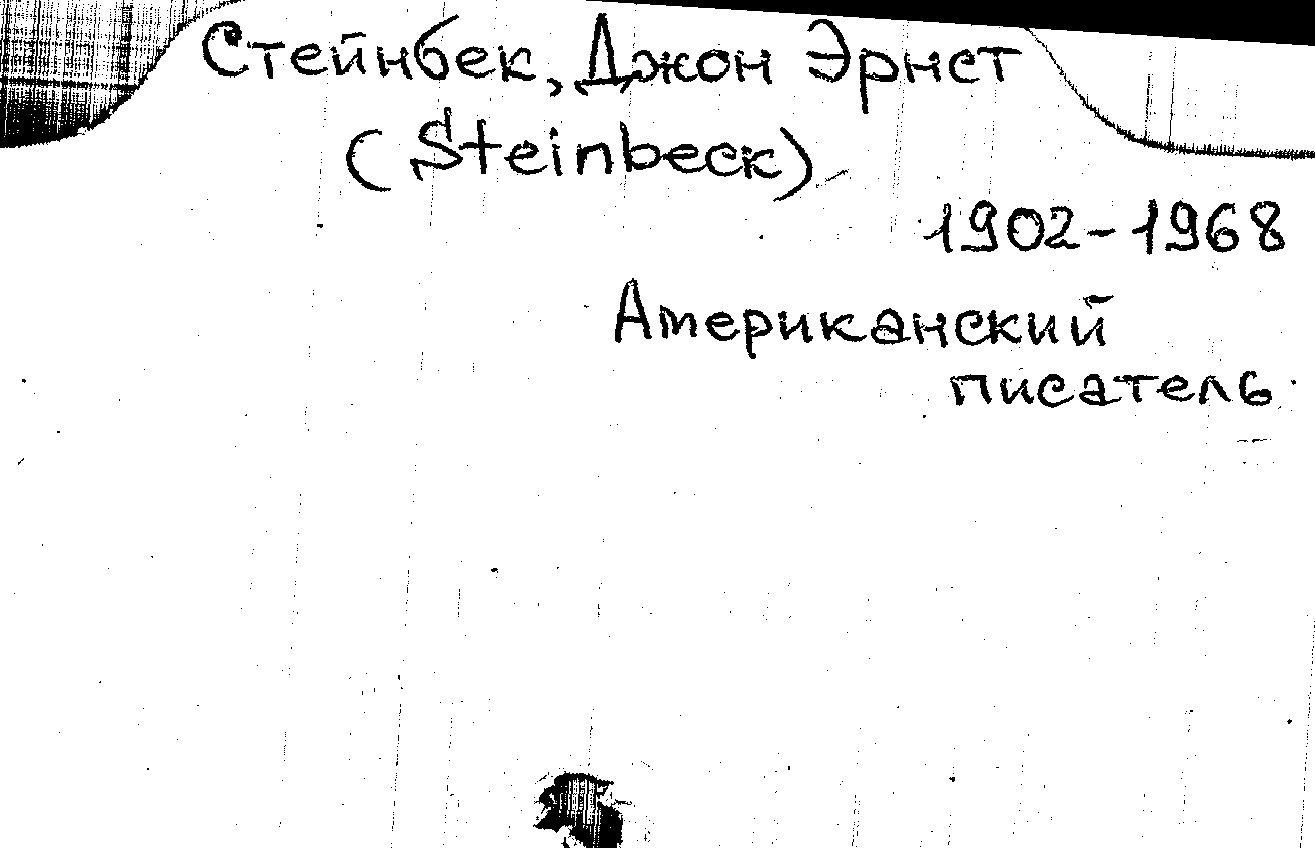 Стейнбек, Джон Эрнст
(Steinbeck)
1902-1968
Американский
писатель